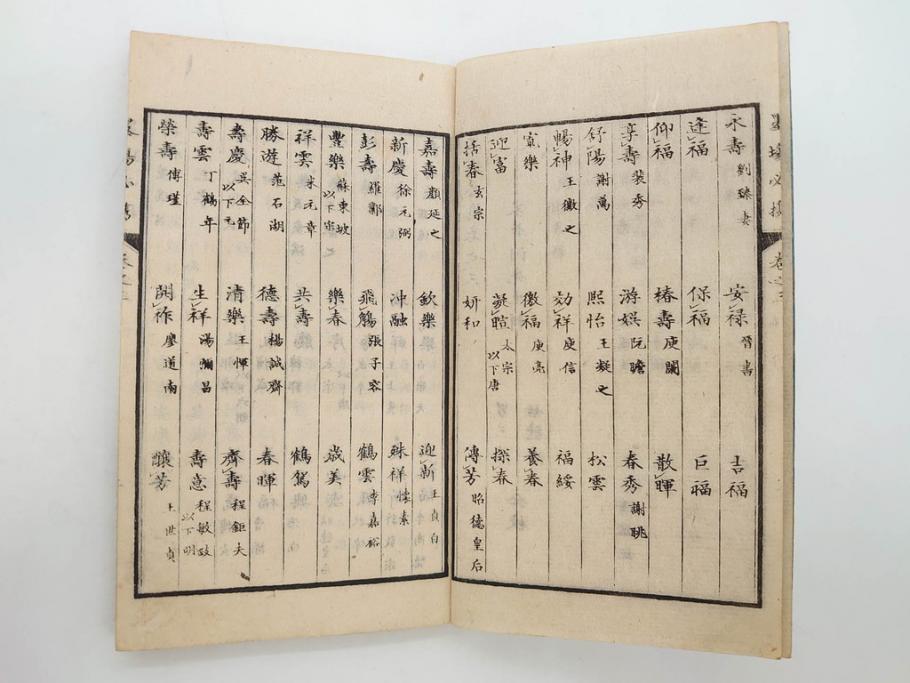 永壽 劉臻妻 安祿 晉書 吉福
逢福 保福 巨福
仰福 椿壽 庾闡 散暉
享壽 裴秀 游娯 阮瞻 春秀 謝眺
舒陽 謝萬 熙怡 王凝之 松雲
暢神 王徽之 効祥 庾信 福綏
寘樂 徽福 庾亮 養春
迎富 凝暄 太宗 以下唐 探春
括春 玄宗 妍和 傳芳 昭德皇后
嘉壽 顏延之 欽樂 迎新 王貞白
新慶 徐元弼 沖融 殊祥 懷素
彭壽 羅鄴 飛觴 張子容 鶴雲 李嘉裕
豐樂 蘇東坡 以下宋 樂春 歳美
祥雲 米元章 共壽 鶴駕
勝遊 范石湖 德壽 楊誠齋 春暉
壽慶 吳全節 以下元 清樂 王惲 齊壽 程鉅夫
壽雲 丁鶴年 生祥 湯彌昌 壽意 程敏政 以下明
榮壽 傅瑾 開祚 廖道南 釀芳 王世貞